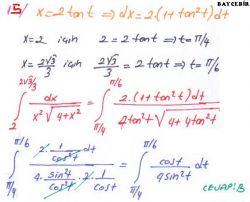 BAYCEBİR
5) x=2tant ⇒ dx=2.(1+tan²t)dt
x=2 için 2=2tant ⇒ t=π/4
x=2√3/3 için 2√3/3=2tant ⇒ t=π/6
∫_2^{2√3/3} dx/(x²√(4+x²)) = ∫_{π/4}^{π/6} 2.(1+tan²t)dt/(4tan²t√(4+4tan²t))
∫_{π/4}^{π/6} (2.1/cos²t dt)/(4.sin²t/cos²t.2.1/cost) = ∫_{π/4}^{π/6} cost/(4sin²t) dt
CEVAP:B